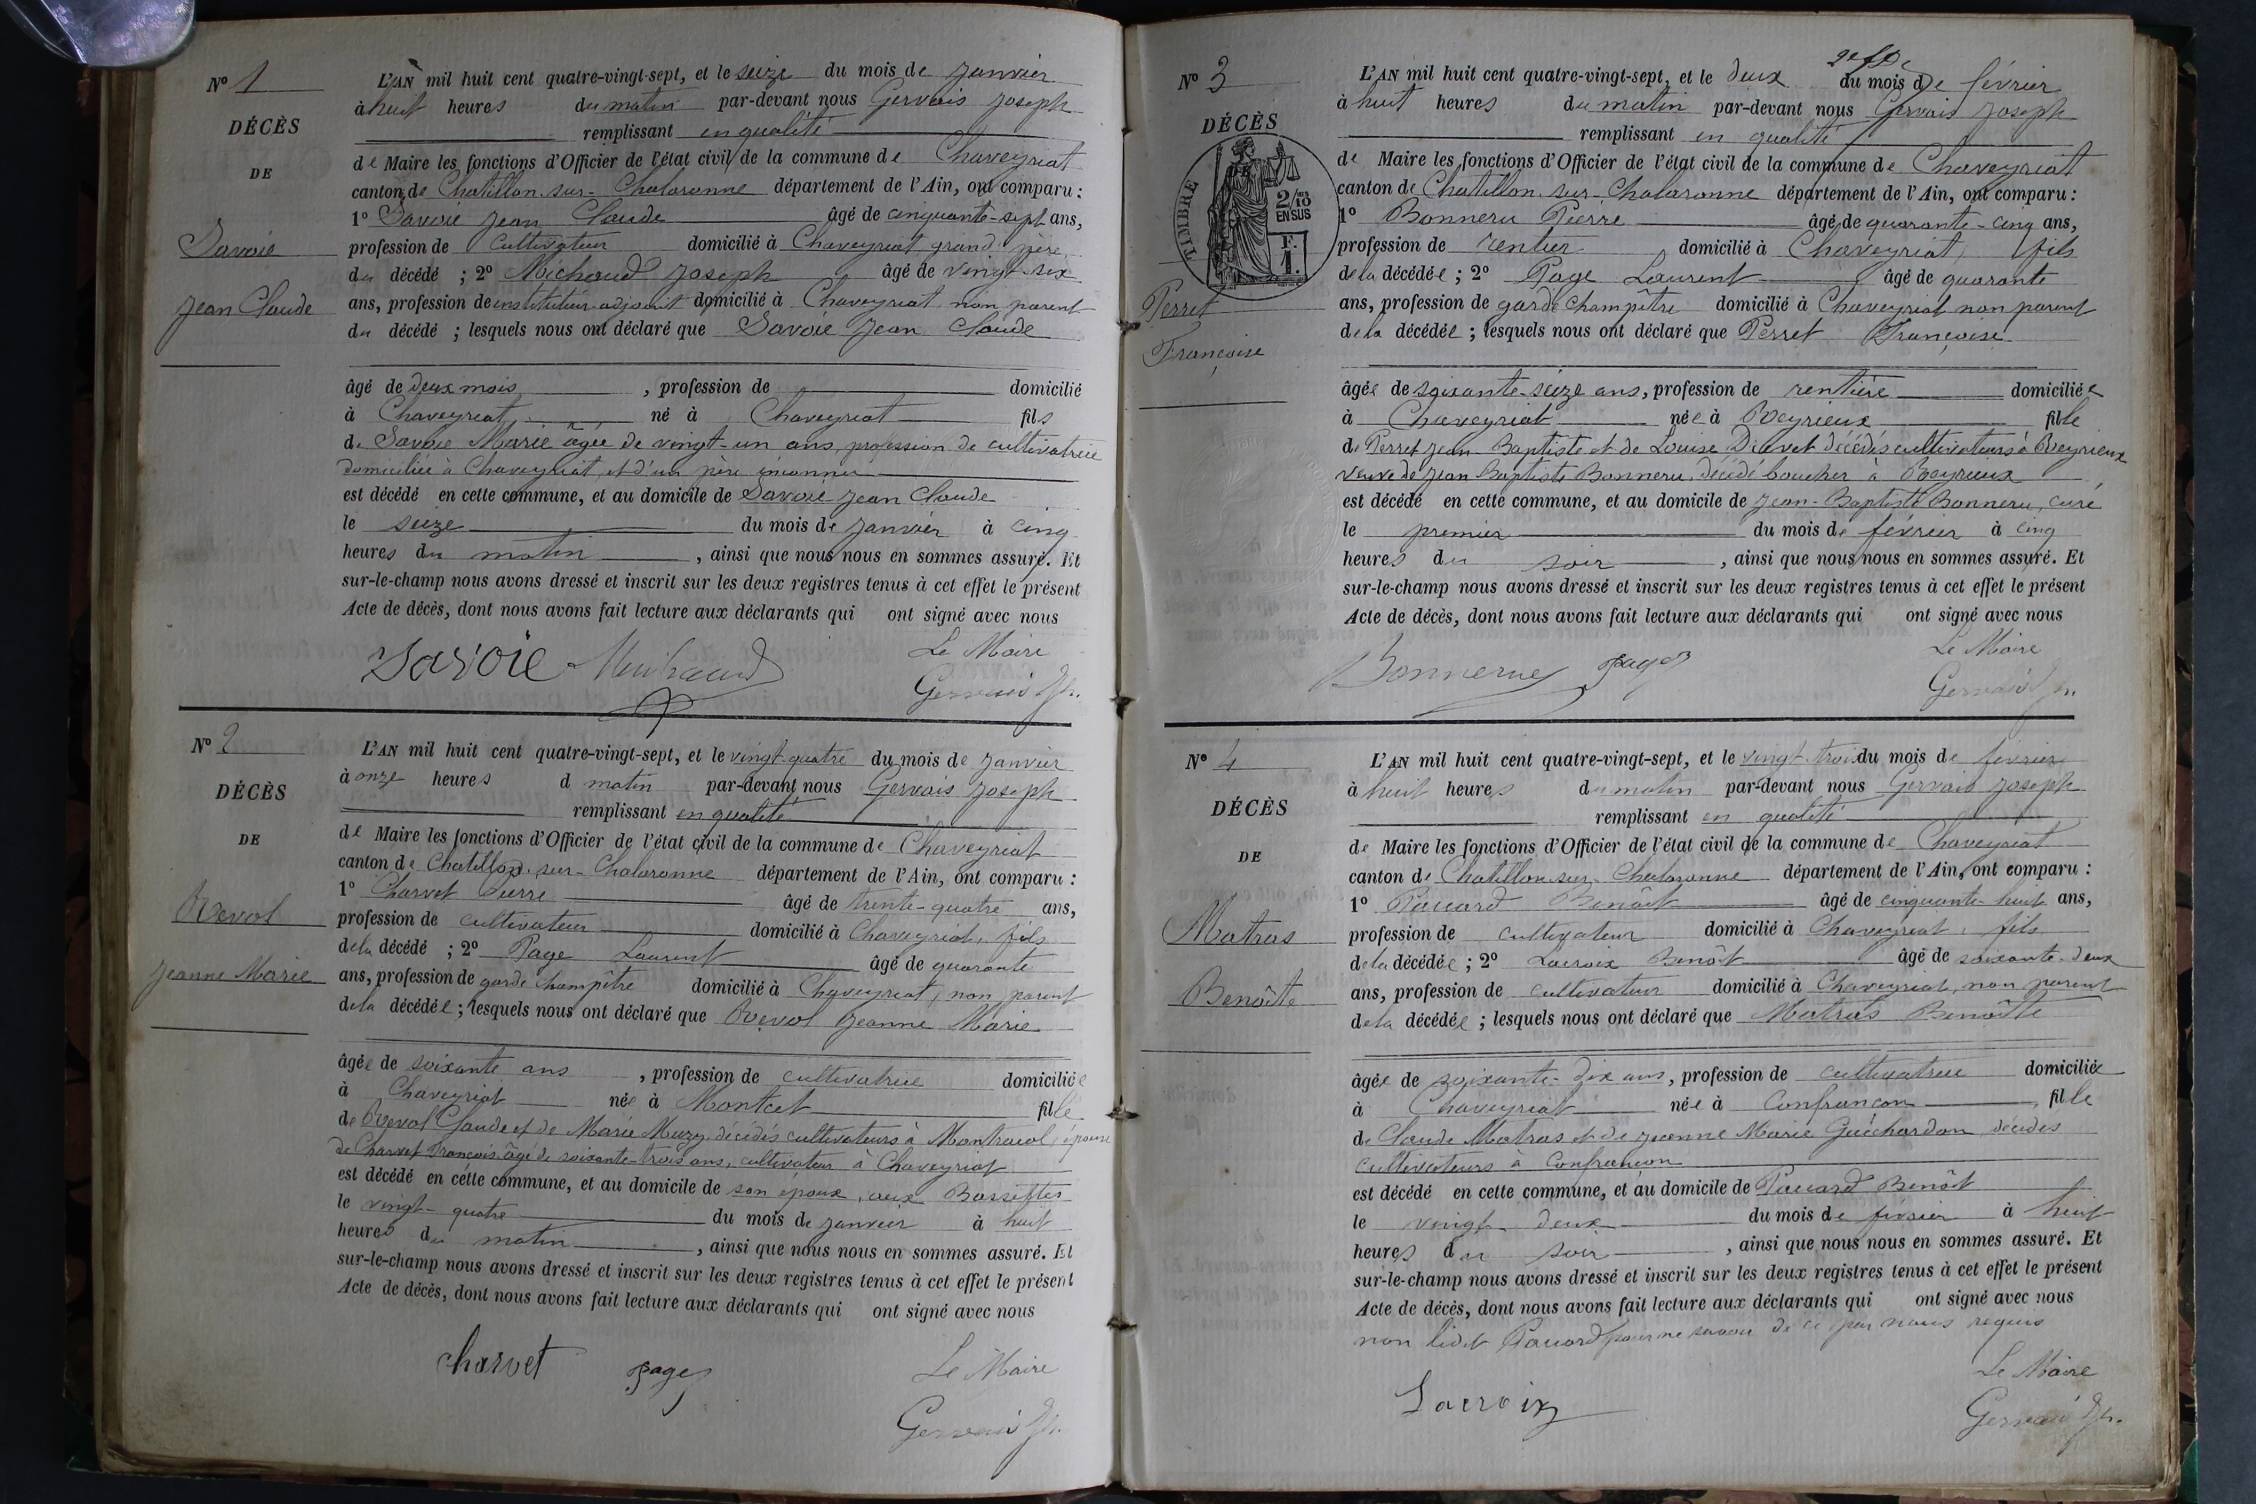 N° 1
DÉCÈS
DE
Savoie
Jean Claude
L'AN mil huit cent quatre-vingt-sept, et le seize du mois de Janvier
à huit heures du matin par-devant nous Gervais Joseph
remplissant en qualité
de Maire les fonctions d'Officier de l'état civil de la commune de Chaveyriat
canton de Chatillon-sur-Chalaronne département de l'Ain, ont comparu :
1° Savoie Jean Claude âgé de cinquante-sept ans,
profession de cultivateur domicilié à Chaveyriat grand père
du décédé ; 2° Michaud Joseph âgé de vingt-six
ans, profession de instituteur-adjoint domicilié à Chaveyriat non parent
du décédé ; lesquels nous ont déclaré que Savoie Jean Claude
âgé de deux mois , profession de domicilié
à Chaveyriat né à Chaveyriat fils
de Savoie Marie âgée de vingt-un ans, profession de cultivatrice
domiciliée à Chaveyriat, et d'un père inconnu
est décédé en cette commune, et au domicile de Savoie Jean Claude
le seize du mois de Janvier à cinq
heures du matin , ainsi que nous nous en sommes assuré. Et
sur-le-champ nous avons dressé et inscrit sur les deux registres tenus à cet effet le présent
Acte de décès, dont nous avons fait lecture aux déclarants qui ont signé avec nous
Le Maire
Savoie Michaud Gervais Jh.
N° 2
DÉCÈS
DE
Jeanne Marie
L'AN mil huit cent quatre-vingt-sept, et le vingt-quatre du mois de Janvier
à onze heures d matin par-devant nous Gervais Joseph
remplissant en qualité
de Maire les fonctions d'Officier de l'état civil de la commune de Chaveyriat
canton de Chatillon-sur-Chalaronne département de l'Ain, ont comparu :
1° Charvet Pierre âgé de trente-quatre ans,
profession de cultivateur domicilié à Chaveyriat, fils
de la décédé ; 2° Page Laurent âgé de quarante
ans, profession de garde champêtre domicilié à Chaveyriat, non parent
de la décédée ; lesquels nous ont déclaré que Jeanne Marie
âgée de soixante ans , profession de cultivatrice domiciliée
à Chaveyriat née à Montcet fille
de Claude et de Marie Muzy, décédés cultivateurs à Montracol, épouse
de Charvet François âgé de soixante-trois ans, cultivateur à Chaveyriat
est décédé en cette commune, et au domicile de son époux, aux
le vingt-quatre du mois de Janvier à huit
heures du matin , ainsi que nous nous en sommes assuré. Et
sur-le-champ nous avons dressé et inscrit sur les deux registres tenus à cet effet le présent
Acte de décès, dont nous avons fait lecture aux déclarants qui ont signé avec nous
charvet page Le Maire
Gervais Jh.
N° 3
DÉCÈS
TIMBRE
2/10 EN SUS
F. 1.
Perret
Françoise
L'AN mil huit cent quatre-vingt-sept, et le deux du mois de février
à huit heures du matin par-devant nous Gervais Joseph
remplissant en qualité
de Maire les fonctions d'Officier de l'état civil de la commune de Chaveyriat
canton de Chatillon-sur-Chalaronne département de l'Ain, ont comparu :
1° Bonneru Pierre âgé de quarante-cinq ans,
profession de rentier domicilié à Chaveyriat, fils
de la décédée ; 2° Page Laurent âgé de quarante
ans, profession de garde champêtre domicilié à Chaveyriat non parent
de la décédée ; lesquels nous ont déclaré que Perret Françoise
âgée de soixante-seize ans, profession de rentière domiciliée
à Chaveyriat née à fille
de Perret Jean Baptiste et de Louise décédés cultivateurs à
veuve de Jean Baptiste Bonneru, décédé boucher à
est décédé en cette commune, et au domicile de Jean-Baptiste Bonneru, curé
le premier du mois de février à cinq
heures du soir , ainsi que nous nous en sommes assuré. Et
sur-le-champ nous avons dressé et inscrit sur les deux registres tenus à cet effet le présent
Acte de décès, dont nous avons fait lecture aux déclarants qui ont signé avec nous
Le Maire
page Gervais Jh.
N° 4
DÉCÈS
DE
Matras
Benoîte
L'AN mil huit cent quatre-vingt-sept, et le vingt-trois du mois de février
à huit heures du matin par-devant nous Gervais Joseph
remplissant en qualité
de Maire les fonctions d'Officier de l'état civil de la commune de Chaveyriat
canton de Chatillon-sur-Chalaronne département de l'Ain, ont comparu :
1° Benoît âgé de cinquante-huit ans,
profession de cultivateur domicilié à Chaveyriat, fils
de la décédée ; 2° Lacroix Benoît âgé de soixante-deux
ans, profession de cultivateur domicilié à Chaveyriat, non parent
de la décédée ; lesquels nous ont déclaré que Matras Benoîte
âgée de soixante-dix ans, profession de cultivatrice domiciliée
à Chaveyriat née à Confrançon fille
de Claude Matras et de Jeanne Marie Guichardon, décédés
cultivateurs à Confrançon
est décédé en cette commune, et au domicile de Benoît
le vingt-deux du mois de février à huit
heures du soir , ainsi que nous nous en sommes assuré. Et
sur-le-champ nous avons dressé et inscrit sur les deux registres tenus à cet effet le présent
Acte de décès, dont nous avons fait lecture aux déclarants qui ont signé avec nous
non ledit pour ne savoir de ce par nous requis
Le Maire
Lacroix Gervais Jh.